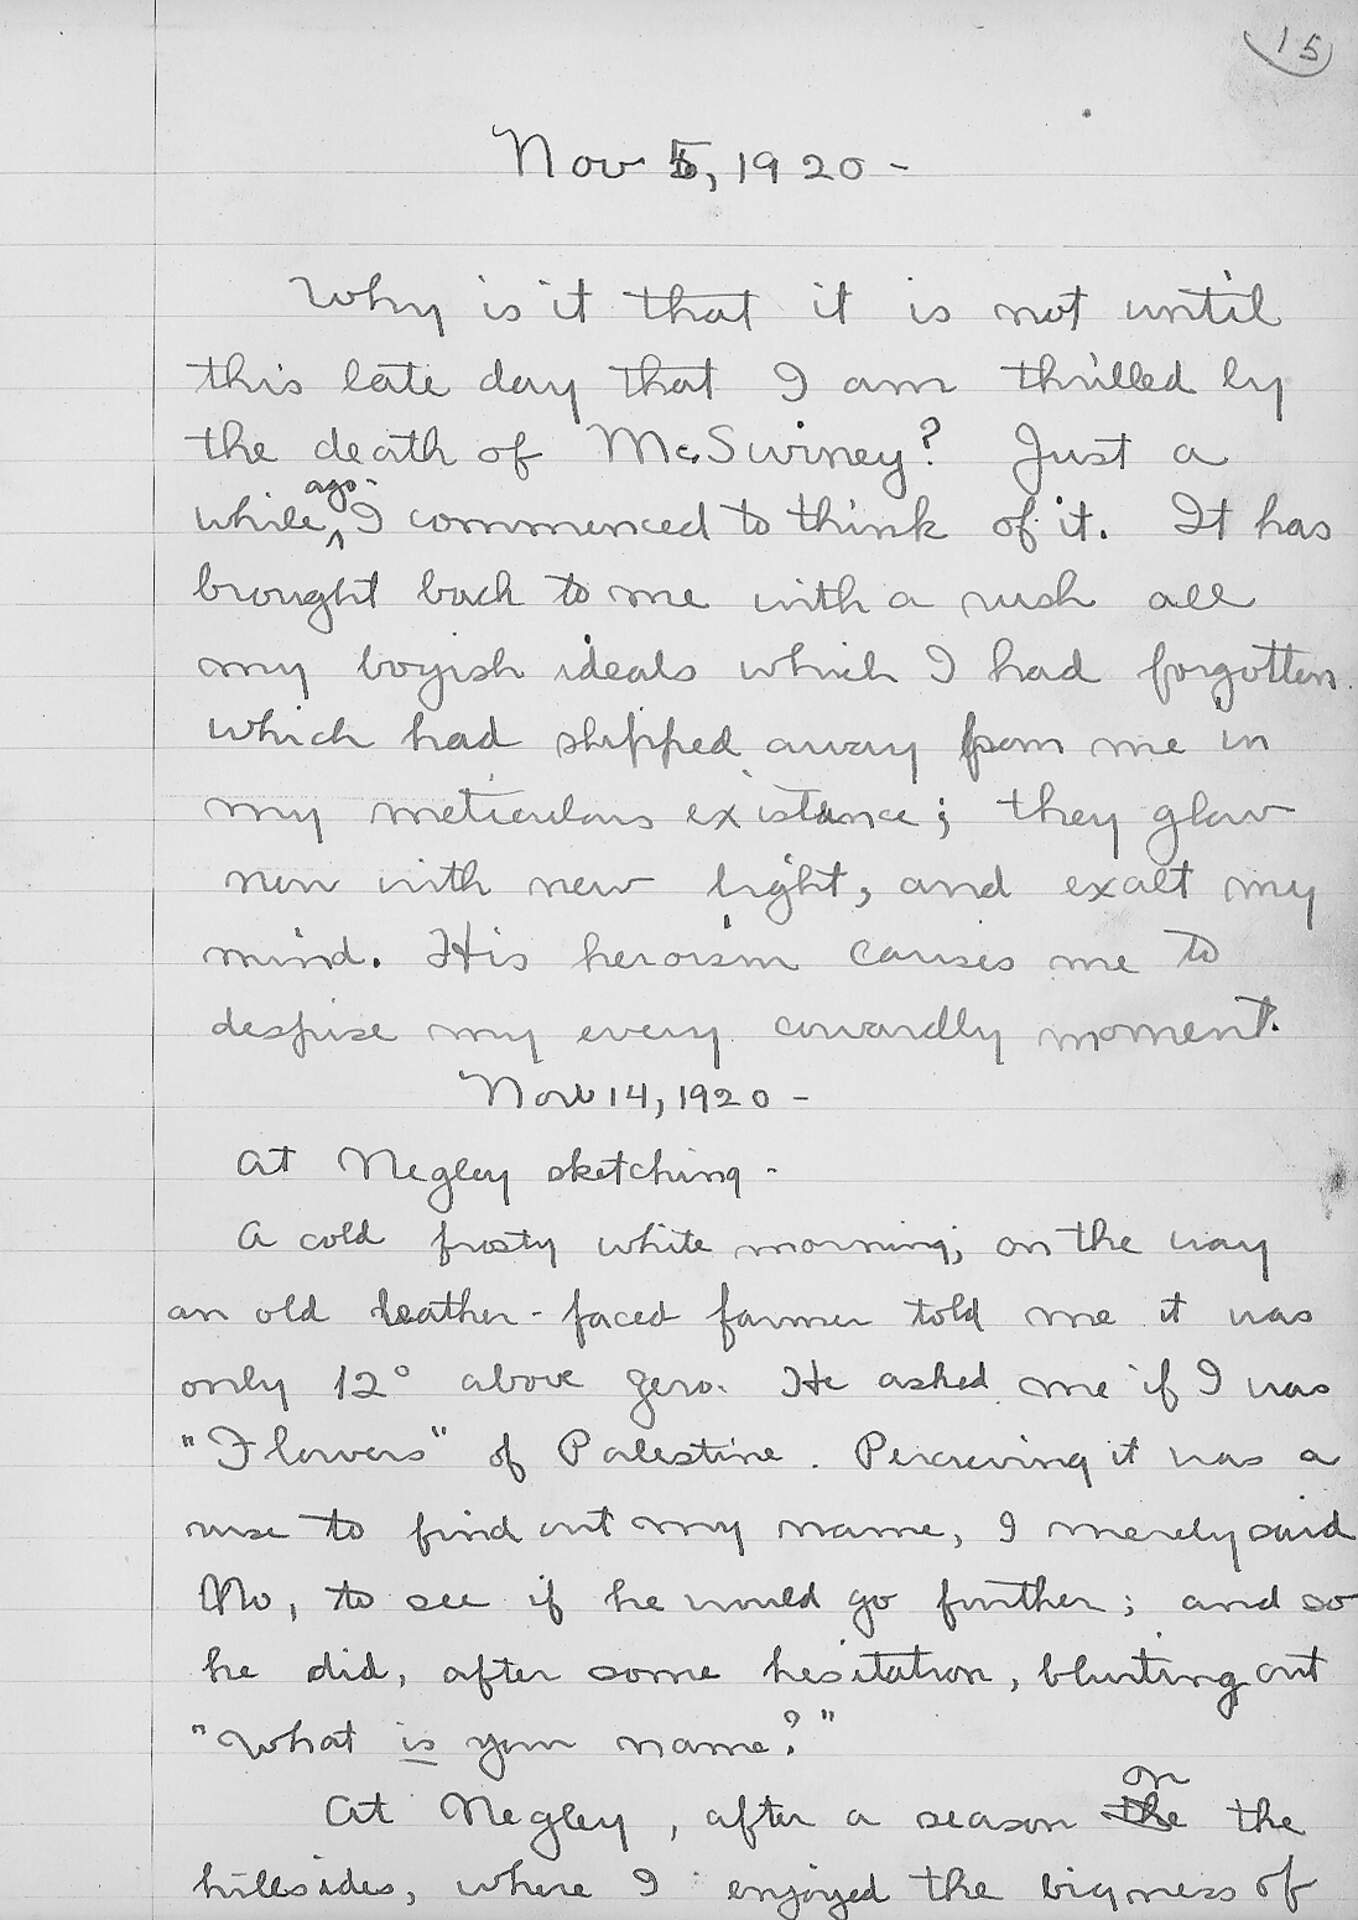 15
Nov 5, 1920 -
Why is it that it is not until
this late day that I am thrilled by
the death of McSwiney? Just a
ago -
while, I commenced to think of it. It has
brought back to me with a rush all
my boyish ideals which I had forgotten
which had slipped away from me in
my meticulous existance; they glow
now with new light, and exalt my
mind. His heroism causes me to
despise my every cowardly moment.
Nov 14, 1920 -
At Negley sketching -
A cold frosty white morning; on the way
an old leather-faced farmer told me it was
only 12° above zero. He asked me if I was
"Flowers" of Palestine. Perceiving it was a
ruse to find out my name, I merely said
No, to see if he would go further; and so
he did, after some hesitation, blurting out
"What is your name?"
on
At Negley, after a season the the
hillsides, where I enjoyed the bigness of